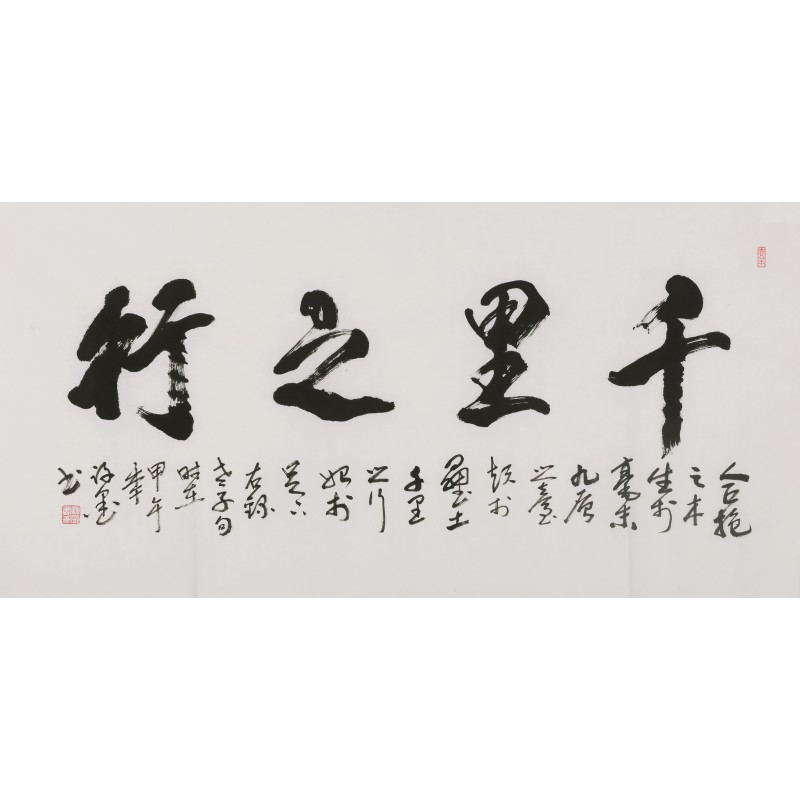 千里之行
合抱
之木
生於
毫末
九层
之臺
起於
壘土
千里
之行
始於
足下
右録
老子句
時在
甲午
书